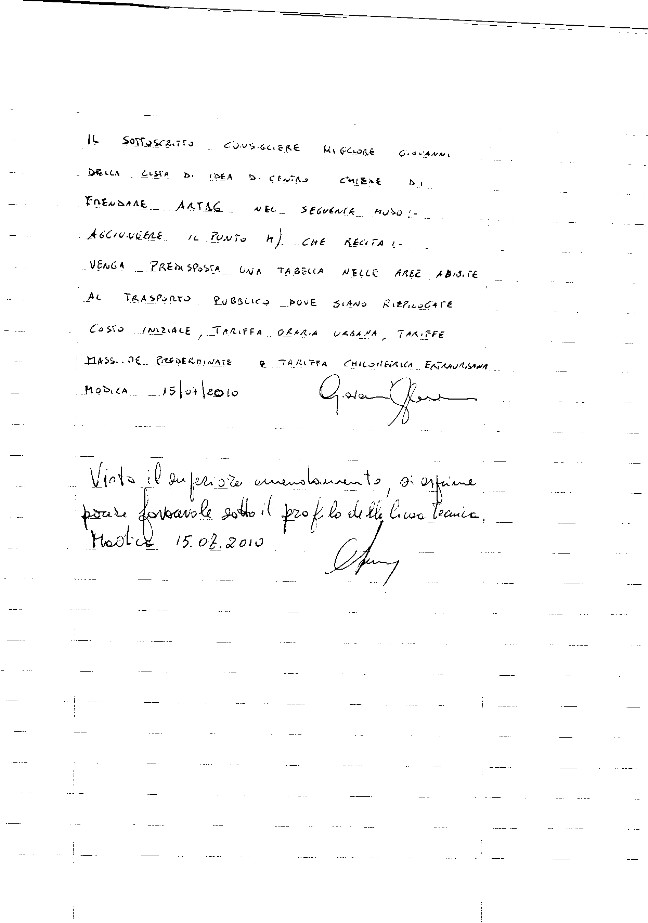 IL SOTTOSCRITTO CONSIGLIERE MIGLIORE GIOVANNI
DELLA LISTA DI IDEA DI CENTRO CHIEDE DI
EMENDARE ART 26 NEL SEGUENTE MODO:-
AGGIUNGERE IL PUNTO H) CHE RECITA:-
VENGA PREDISPOSTA UNA TABELLA NELLE AREE ADIBITE
AL TRASPORTO PUBBLICO DOVE SIANO RIEPILOGATE
COSTO INIZIALE, TARIFFA ORARIA URBANA, TARIFFE
E TARIFFA CHILOMETRICA EXTRAURBANA
MODICA 15/07/2010
Visto il superiore emendamento, si esprime
parere favorevole sotto il profilo della tecnica.
Modica 15.07.2010